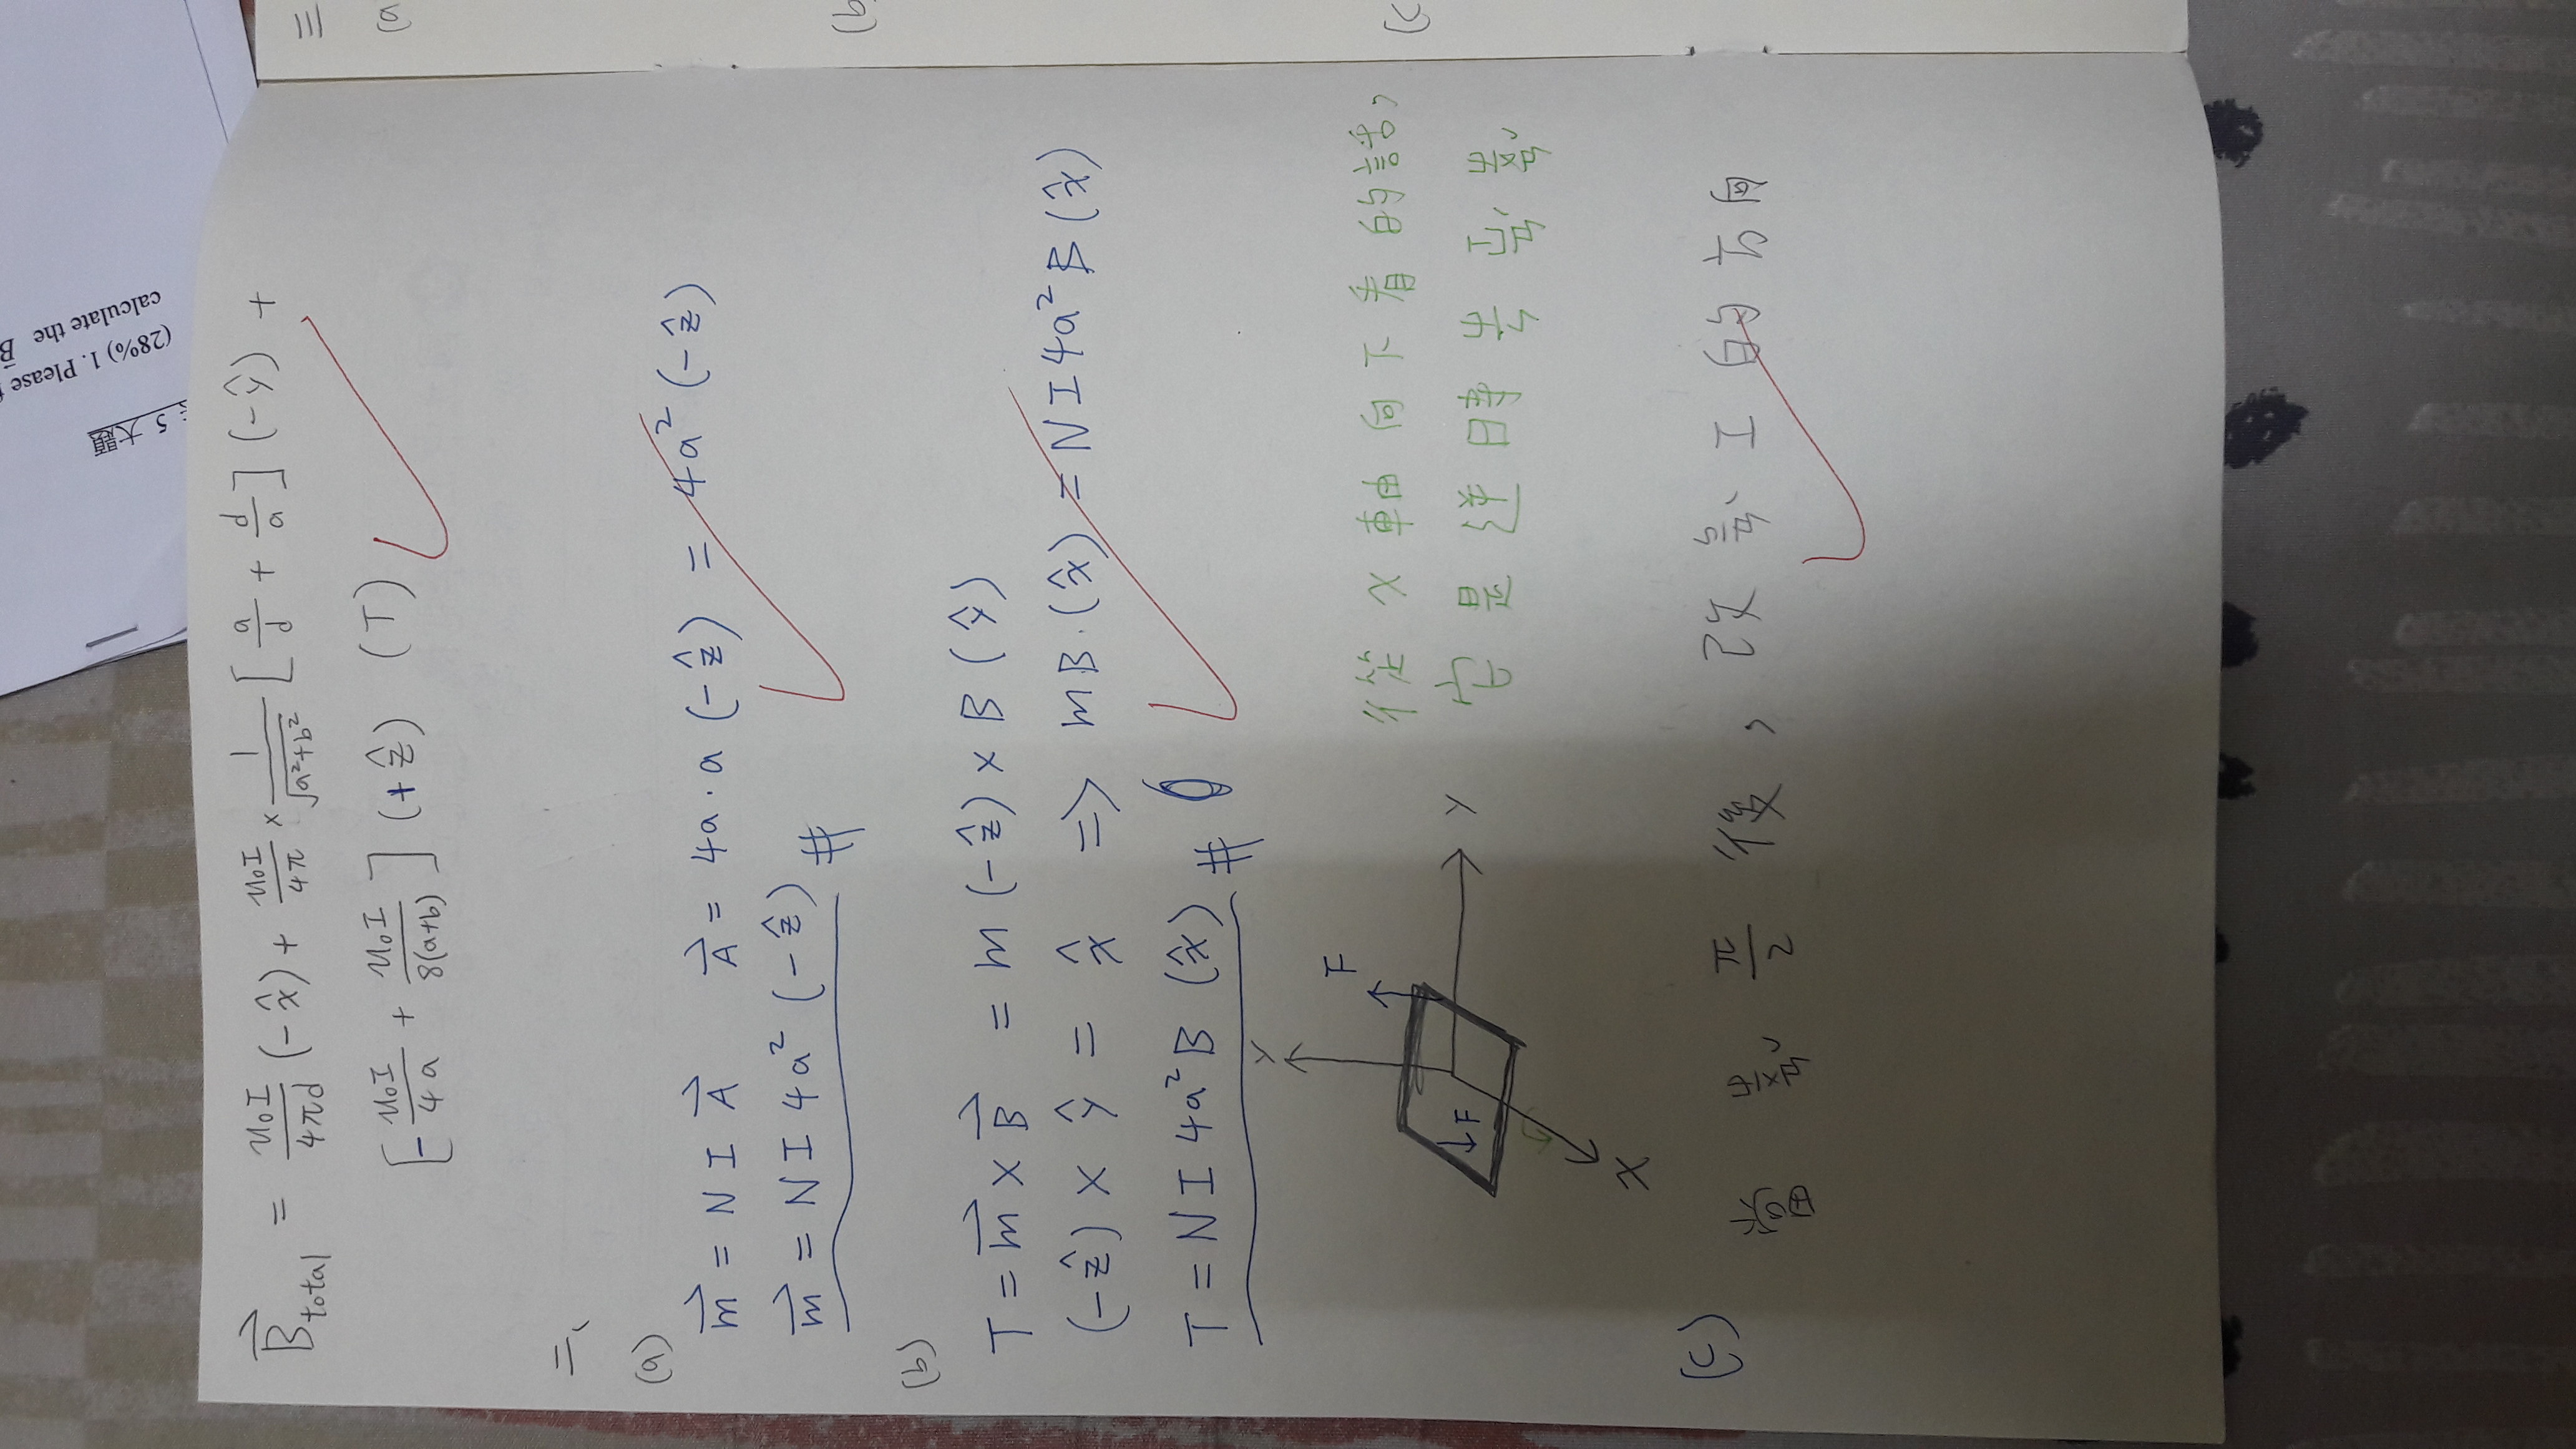 5 大題
(28%) 1. Please
calculate the B
B⃗total = μ₀I/4πd (-x̂) + μ₀I/4π × 1/√(a²+b²) [a/d + d/a] (-ŷ) +
[-μ₀I/4a + μ₀I/8(a+b)] (+ẑ) (T)
二、
(a)
m⃗ = N I A⃗ A⃗ = 4a·a (-ẑ) = 4a² (-ẑ)
m⃗ = N I 4a² (-ẑ) #
(b)
T = m⃗ × B⃗ = m (-ẑ) × B (ŷ)
(-ẑ) × ŷ = x̂ => mB·(x̂) = N I 4a² B (x̂)
T = N I 4a² B (x̂) #
Y
F
F
Y
X
從 X 軸 向 下 看 的 話,
它 是 逆 時 方 向 轉
(c)
當 轉 π/2 後, 改 變 I 的 方向
三
(a
(b
(c